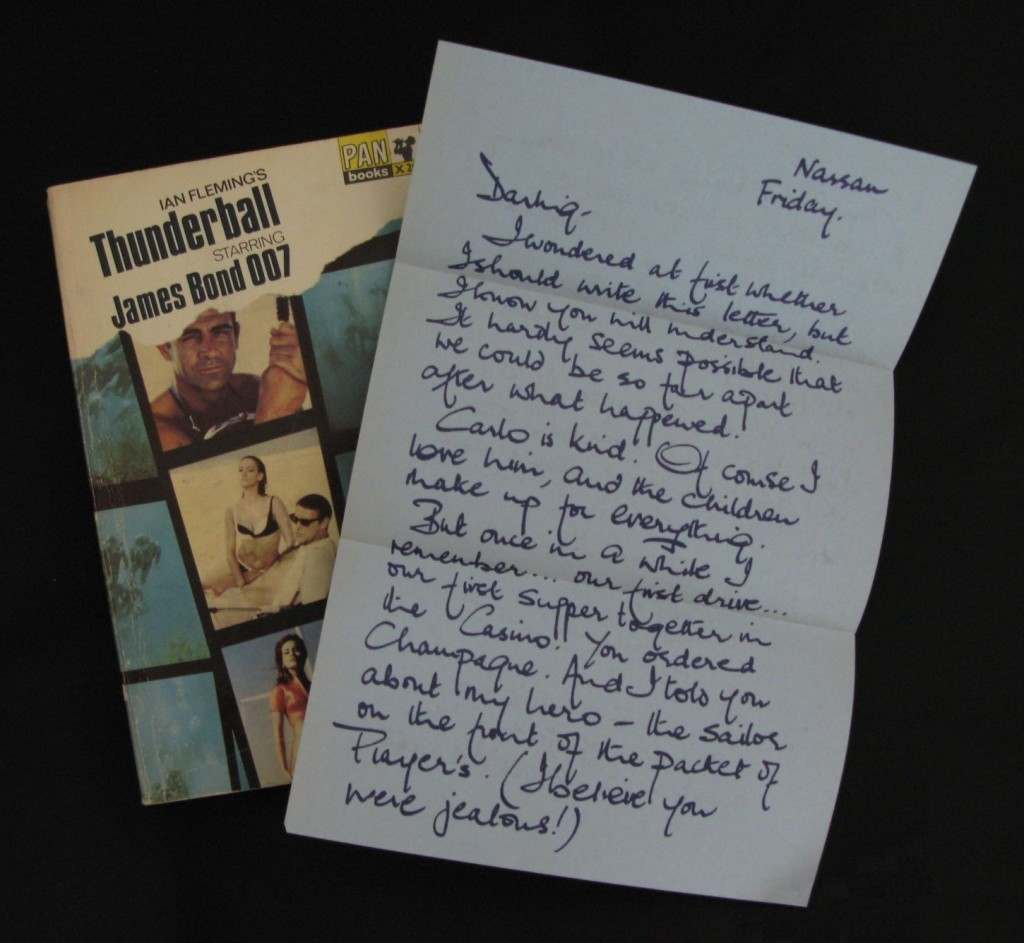 PAN
books X2
IAN FLEMING'S
Thunderball
STARRING
James Bond 007
Nassau
Friday.
Darling-
I wondered at first whether
I should write this letter, but
I know you will understand.
It hardly seems possible that
we could be so far apart
after what happened.
Carlo is kind. Of course I
love him, and the children
make up for everything.
But once in a while I
remember... our first drive...
our first supper together in
the Casino. You ordered
Champagne. And I told you
about my hero – the sailor
on the front of the packet of
Player's. (I believe you
were jealous!)